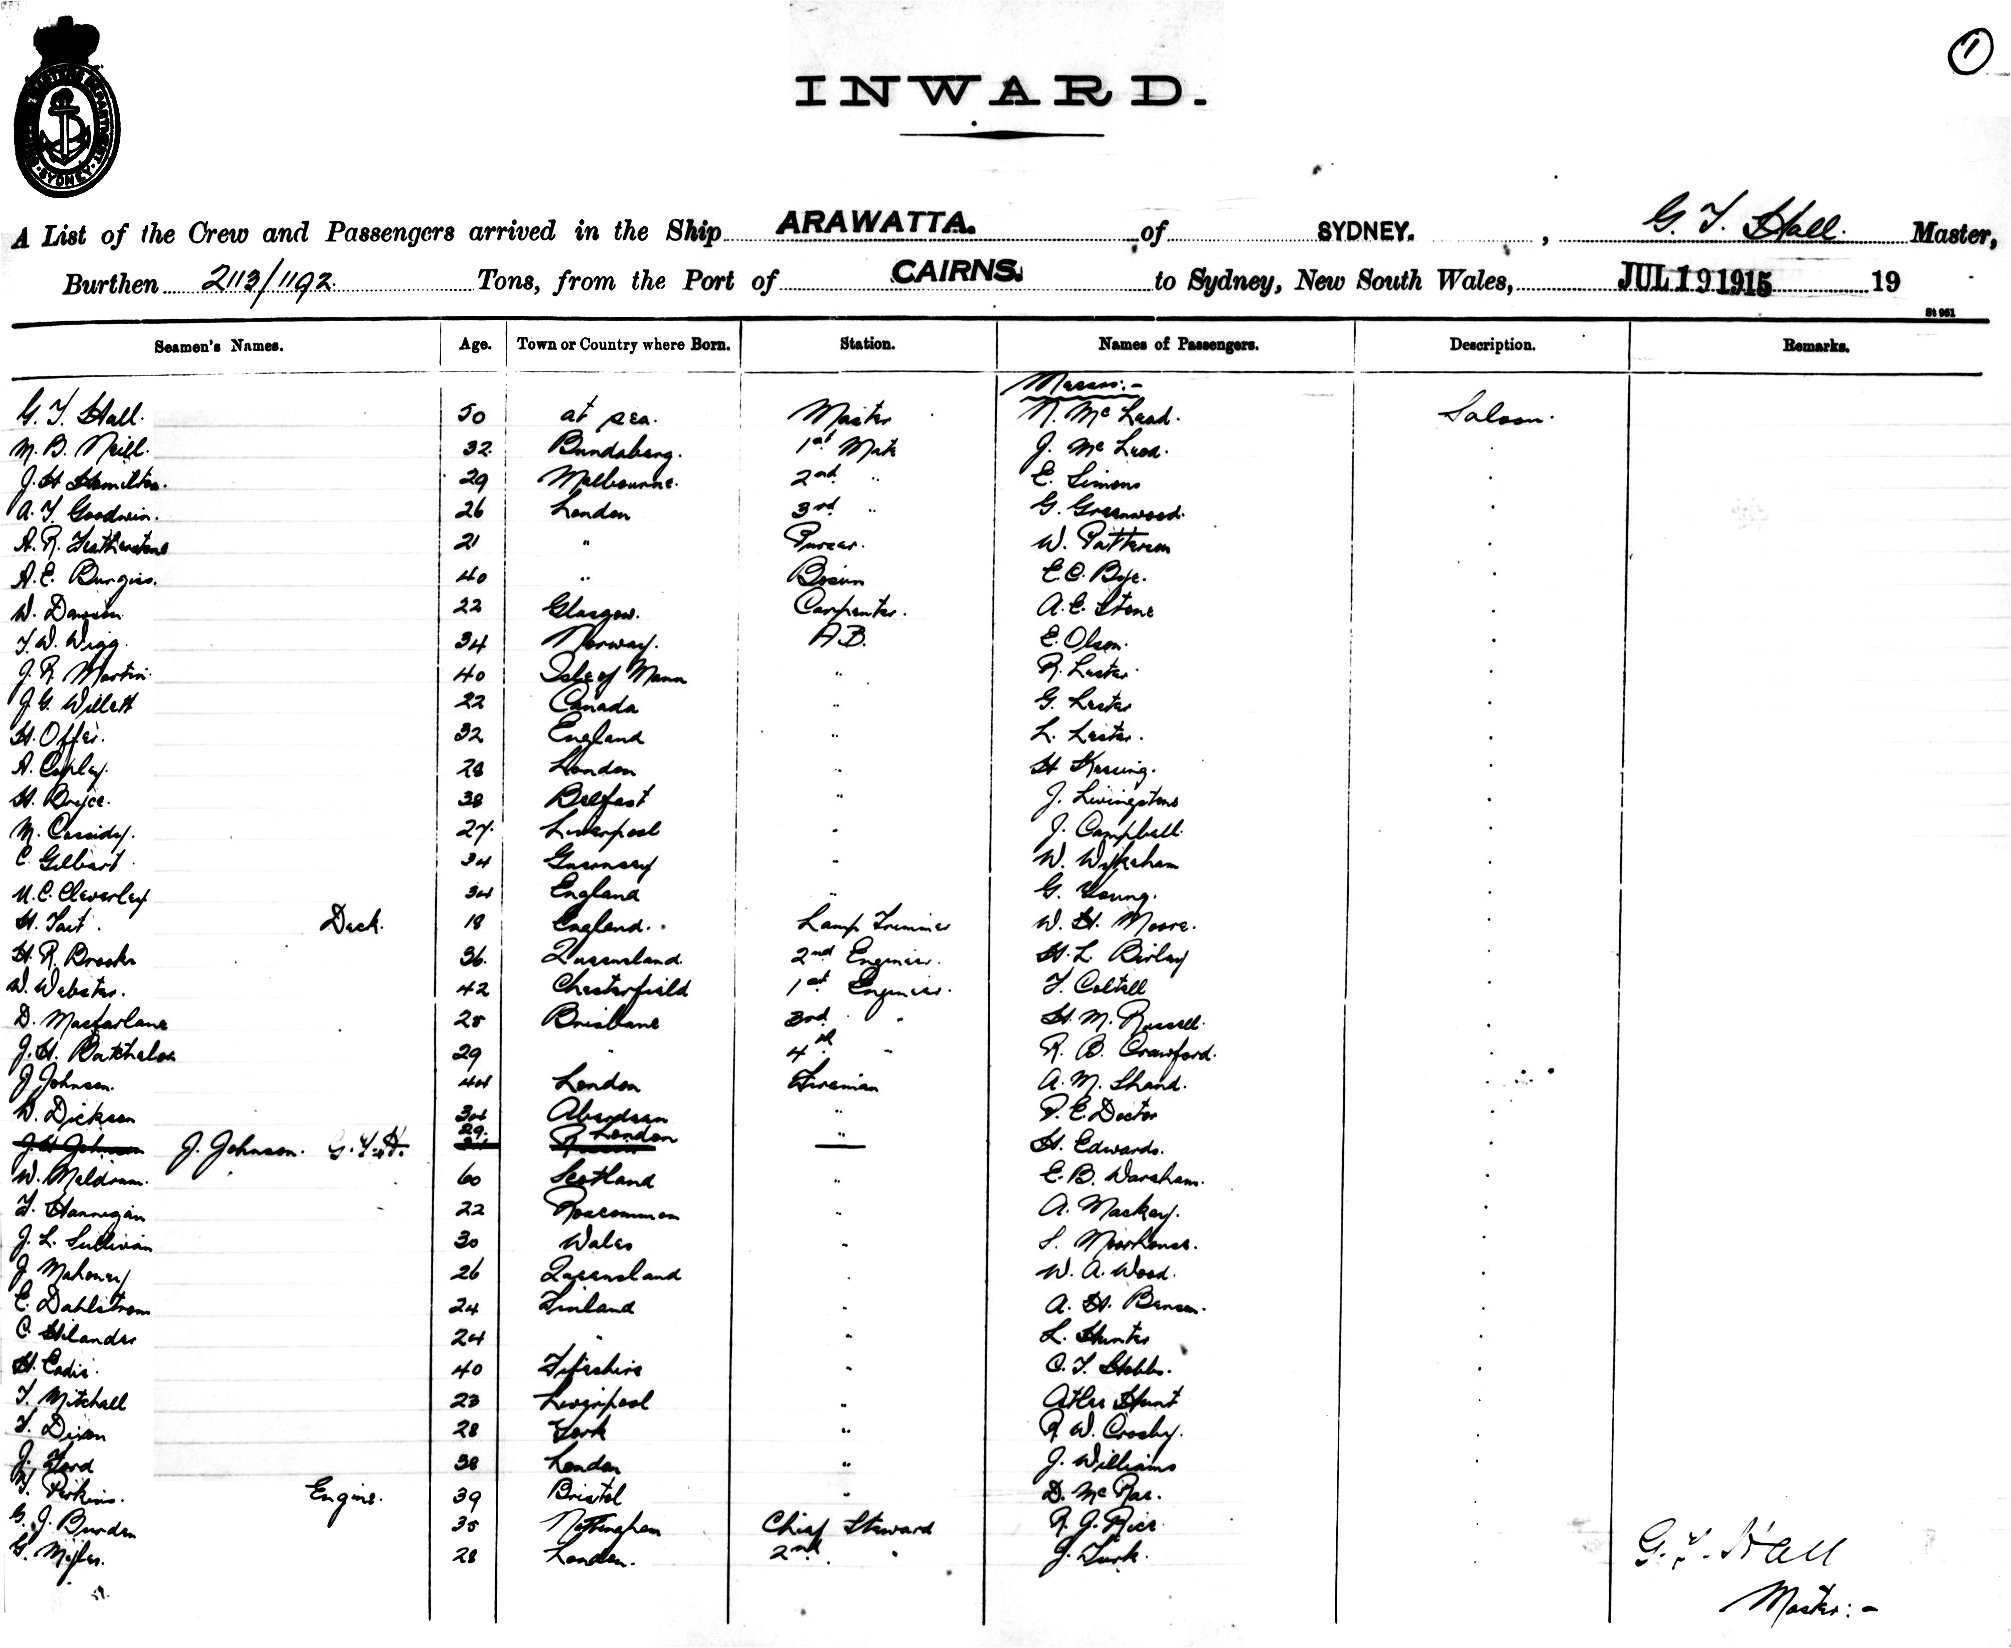 1
INWARD.
SYDNEY
A List of the Crew and Passengers arrived in the Ship ARAWATTA. of SYDNEY. , G. T. Hall. Master,
Burthen 2113/1192 Tons, from the Port of CAIRNS. to Sydney, New South Wales, JUL 19 1915 19
St 961
Seamen's Names. Age. Town or Country where Born. Station. Names of Passengers. Description. Remarks.
Messrs:-
G. T. Hall. 50 at sea. Master N. McLeod. Saloon.
M. B. Neill. 32. Bundaberg. 1st Mate J. McLeod.
J. H Hamilton. 29 Melbourne. 2nd " E. Simons
A. T. Goodwin. 26 London 3rd " G. Greenwood.
A. R. Featherstone 21 " Purser. W. Patterson
A. E. Burgiss. 40 " Bosun E. C. Bye.
W. Dawson. 22 Glasgow. Carpenter. A. E. Stone
T. W. Wigg. 34 Norway. A.B. E. Olson.
J. R. Martin. 40 Isle of Mann " R. Lester.
J. G. Willett 22 Canada " G. Lester
H. Offer. 32 England " L. Lester.
A. Copley. 28 London " H
H. Bryce. 38 Belfast " J. Livingstone
M. Cassidy. 27. Liverpool " J. Campbell.
C. Gilbert. 34 Guernsey " W. Wykeham
C. Cleverley 34 England " G. Young.
H. Tait. Deck. 18 England. Lamp Trimmer W. H. Moore.
H. R. Brooks 36. Queensland. 2nd Engineer. H. L. Birley
W. Webster. 42 Chesterfield 1st Engineer. T.
D. Macfarlane 25 Brisbane 3rd " H. M. Russell.
J. H. Batchelor 29 " 4th " R. B. Crawford.
J Johnson. 44 London Fireman A. M. Shand.
D. Dickson 34 Aberdeen " P. E. Doctor
J H Johnson J. Johnson. G. T. H. 29. London " H. Edwards.
W. Meldrum. 60 Scotland " E. B. Warsham.
T. Hannigan 22 Roscommon " A. Mackay.
J. L. Sullivan 30 Wales " S. Moorhouse.
J Mahoney 26 Queensland W. A. Wood.
E. Dahlstrom 24 Finland " A. H. Benson.
C. Hilander 24 " " L. Hunter
H. Eadie. 40 Fifeshire " C. T. Stobbs.
T. Mitchell 23 Liverpool " Atlee Hunt
T. Dixon 28 York " R. W. Crosby.
J. Ford 38 London " J. Williams
T. Perkins. Engine. 39 Bristol " D. McRae.
G. J. Burden 35 Nottingham Chief Steward R. J. Rice.
G. Myles. 28 London. 2nd " J. Turk.
G. T. Hall
Master:-